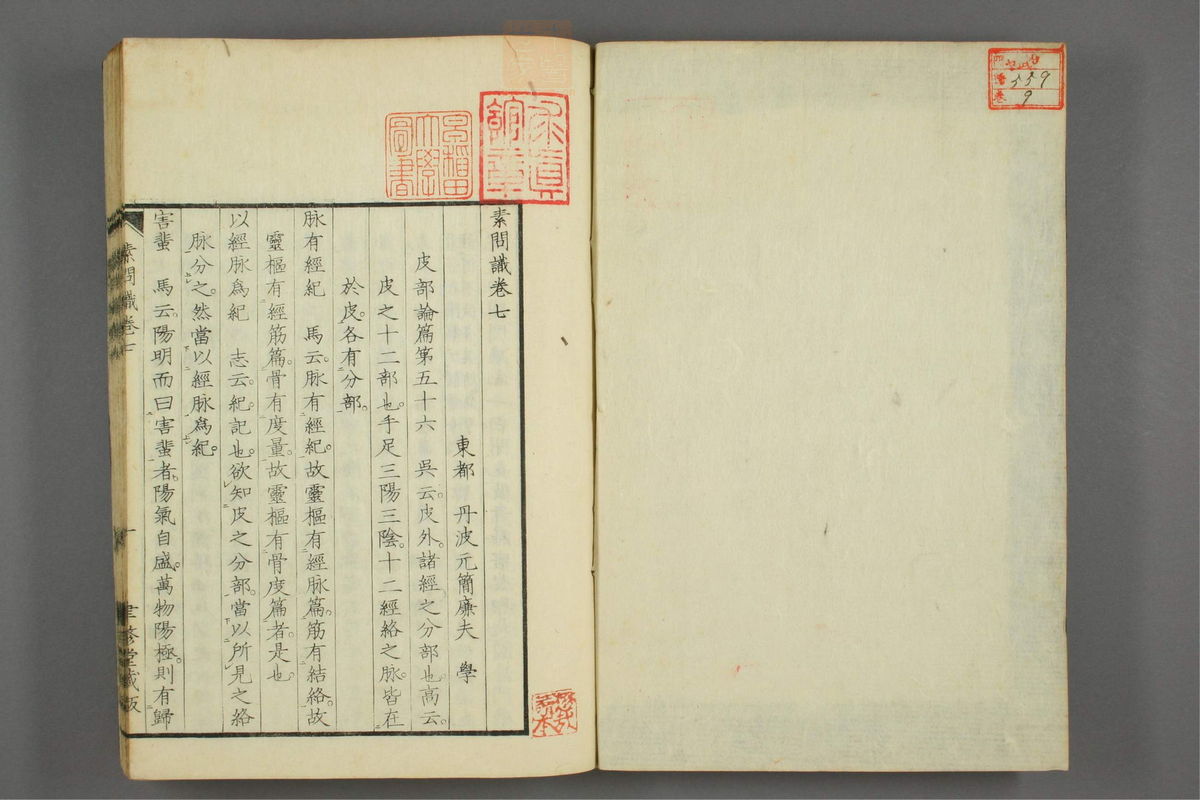 素問識卷七
東都 丹波元簡廉夫 學
皮部論篇第五十六 吳云。皮外。諸經之分部也。高云。
皮之十二部也。手足三陽三陰。十二經絡之脉。皆在
於皮。各有分部。
脉有經紀 馬云。脉有經紀。故靈樞有經脉篇。筋有結絡。故
靈樞有經筋篇。骨有度量。故靈樞有骨度篇者。是也。
以經脉爲紀 志云。紀。記也。欲知皮之分部。當以所見之絡
脉分之。然當以經脉爲紀。
害蜚 馬云。陽明而曰害蜚者。陽氣自盛。萬物陽極。則有歸
素問識卷七
一
聿修堂藏板
早稻田
大學
圖書
559
9